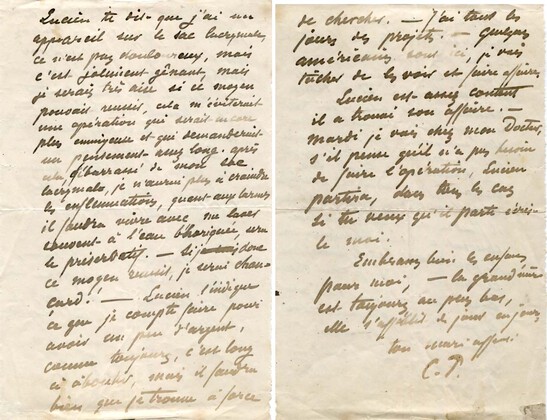 Lucien te dis que j'ai un
appareil sur le sac lacrymale,
ce n'est pas douloureux, mais
c'est joliment gênant, mais
je serais très aise si ce moyen
pouvait reussir, cela m'éviterait
une opération qui serait encore
plus ennuyeuse et qui demanderait
un pensement assez long. après
débarrassé de mon sac
lacrymale, je n'aurai plus à craindre
les inflammations, quant aux larmes
il faudra vivre avec me laver
souvent à l'eau bhoriquée sera
le préservatif. — si donc
ce moyen reussit, je serai chan-
card! — Lucien t'indique
ce que je compte faire pour
avoir un peu d'argent,
comme toujours, c'est long
à aboutir, mais il faudra
bien que je trouve à force
de chercher. — J'ai tout les
jours des projets — quelques
américains sont ici, je vais
tâcher de les voir et faire affaires
Lucien est assez content
il a trouvé son affaire. —
mardi je vais chez mon Doctor,
s'il pense qu'il n'a pas besoin
de faire l'opération, Lucien
partira, dans tous les cas
si tu veux qu'il parte écris-
le moi.
Embrasse bien les enfants
pour moi, — la grand'mère
est toujours au plus bas,
elle s'affaiblit de jour en jour
ton mari affné
C. P.